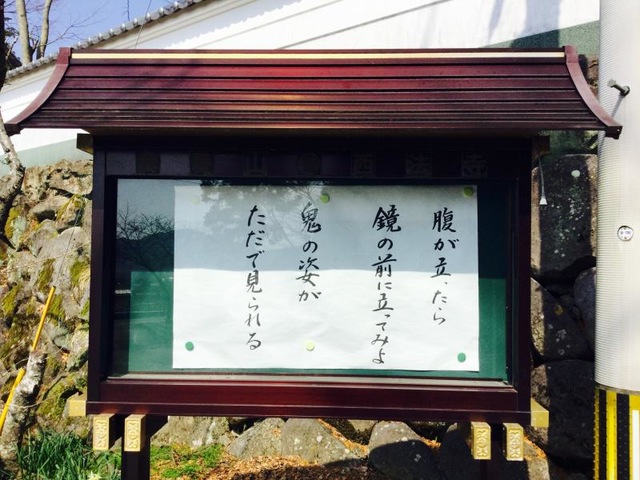 腹が立ったら
鏡の前に立ってみよ
鬼の姿が
ただで見られる